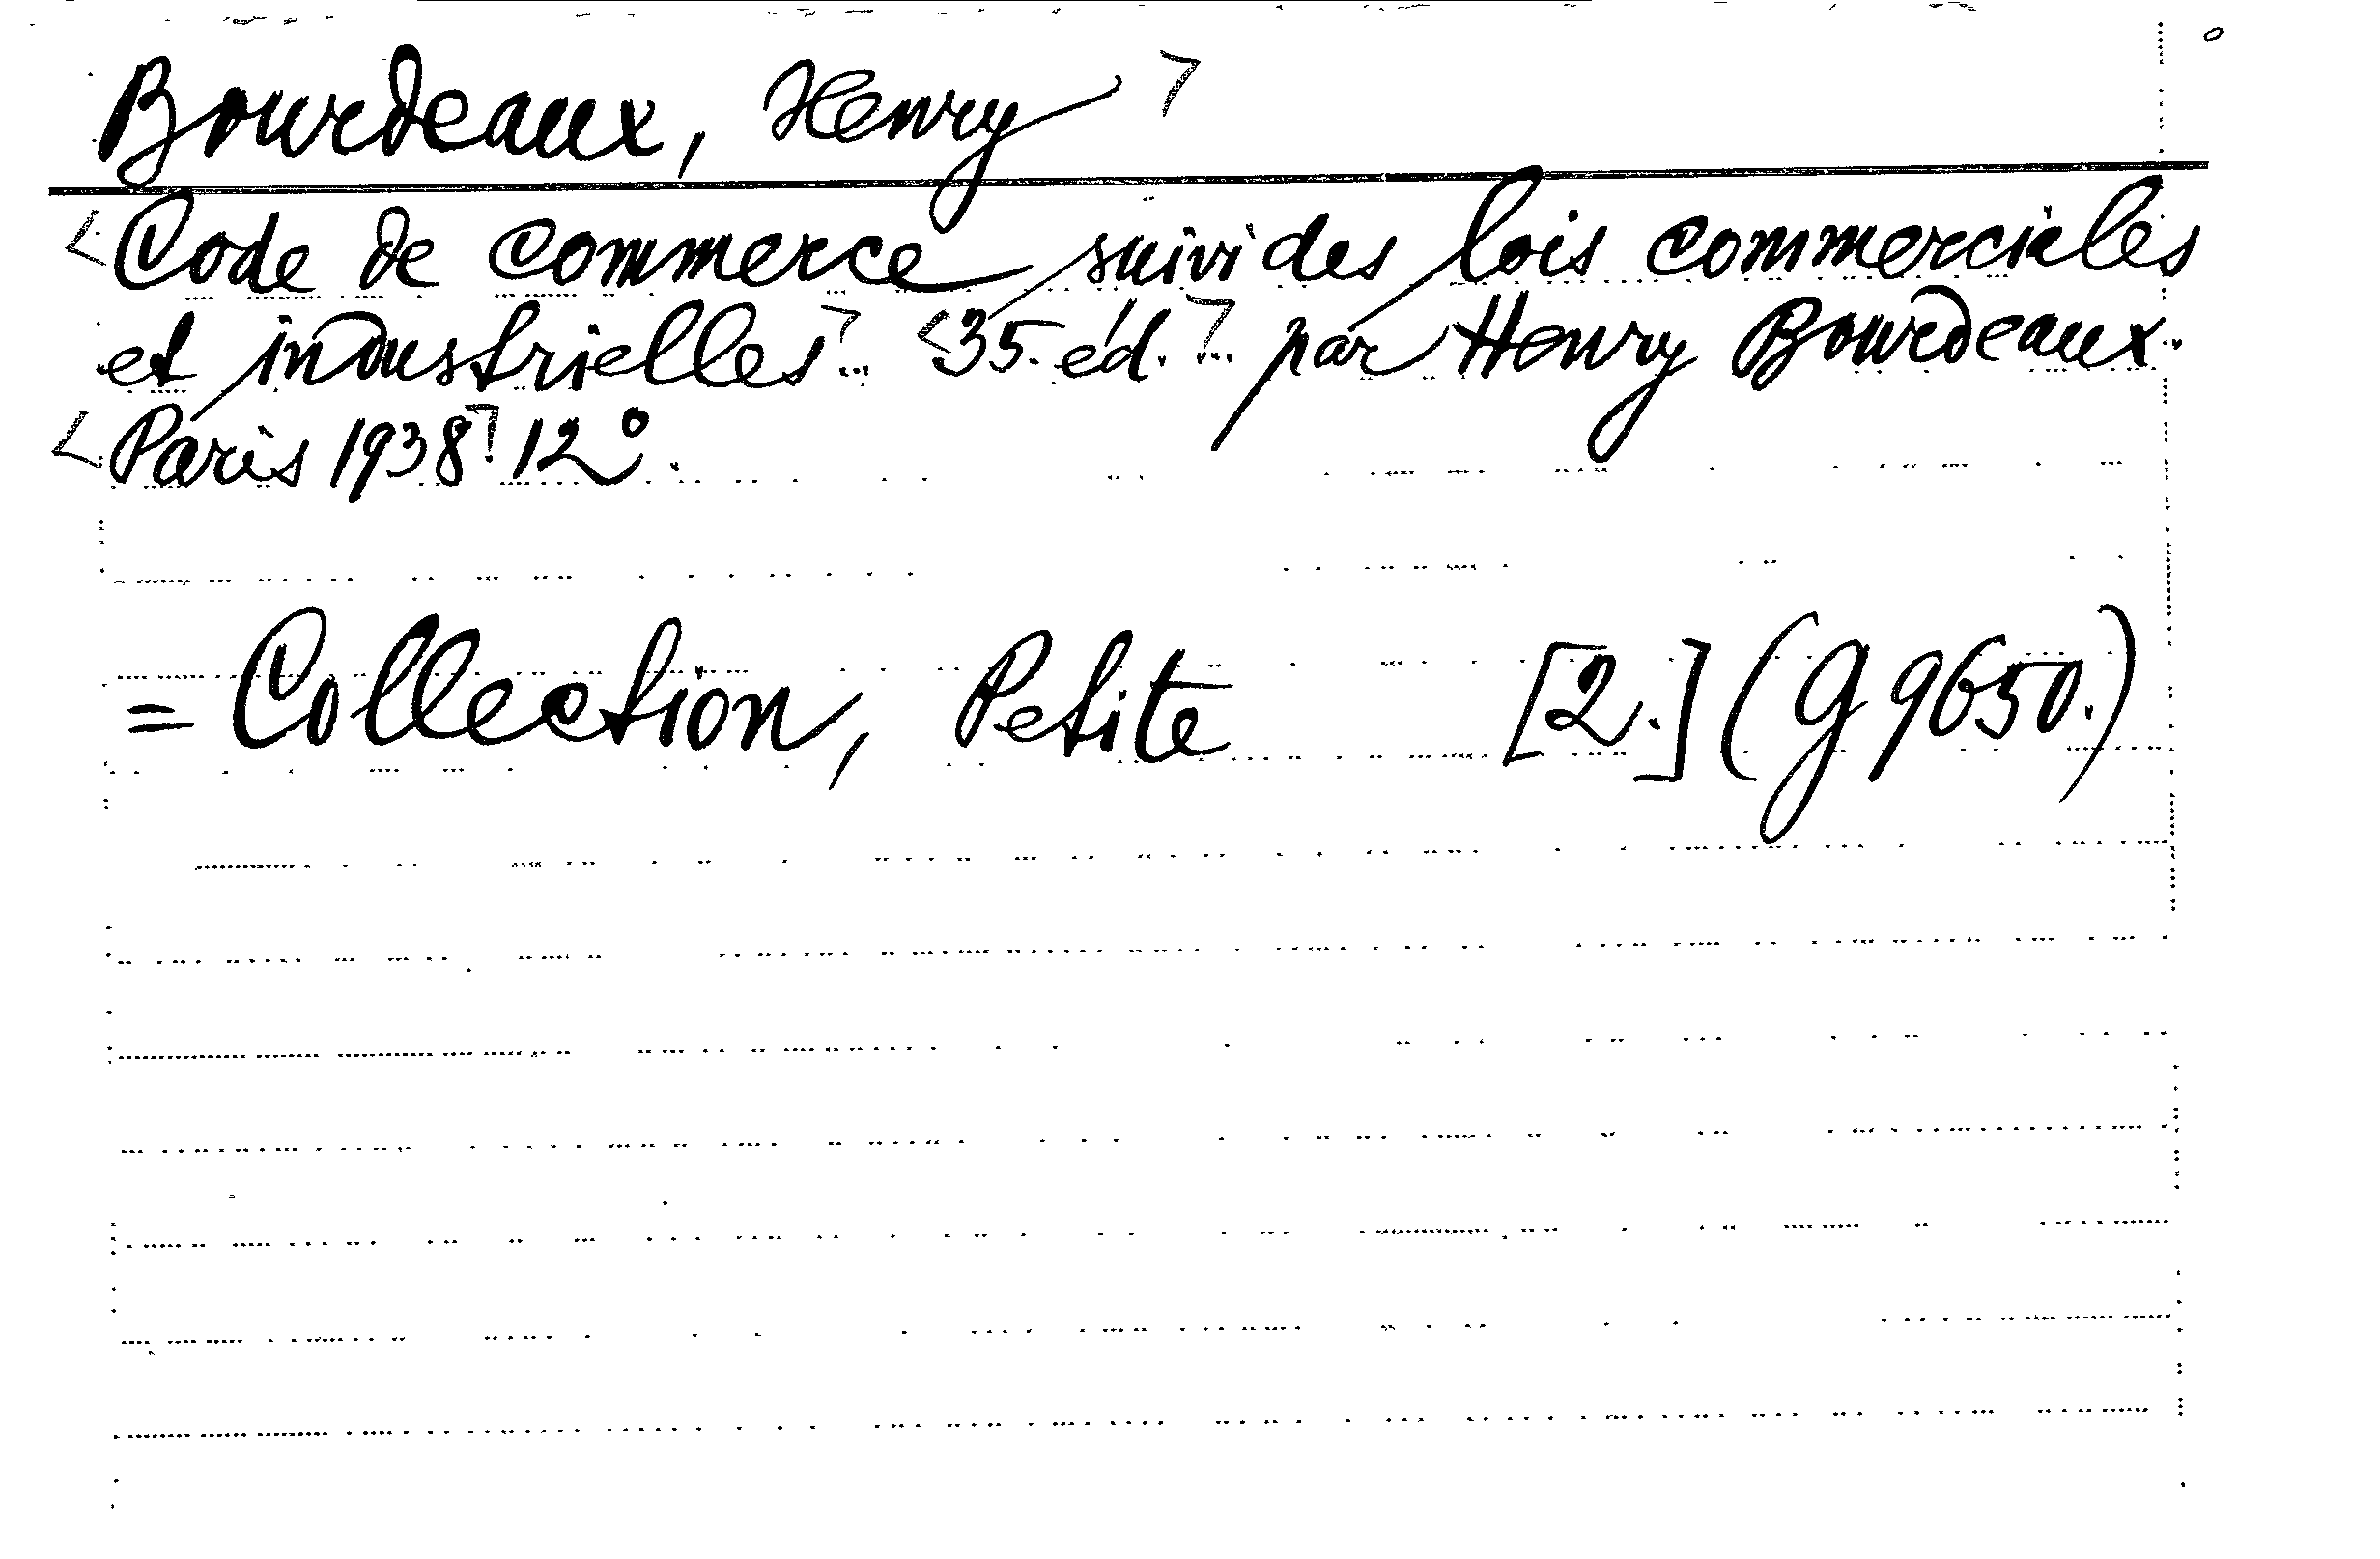 Bourdeaux, Henry
Code de commerce suivi des lois commerciales
et industrielles. 35. éd. par Henry Bourdeaux.
Paris 1938. 12°.
= Collection, Petite [2.] (G 9650.)